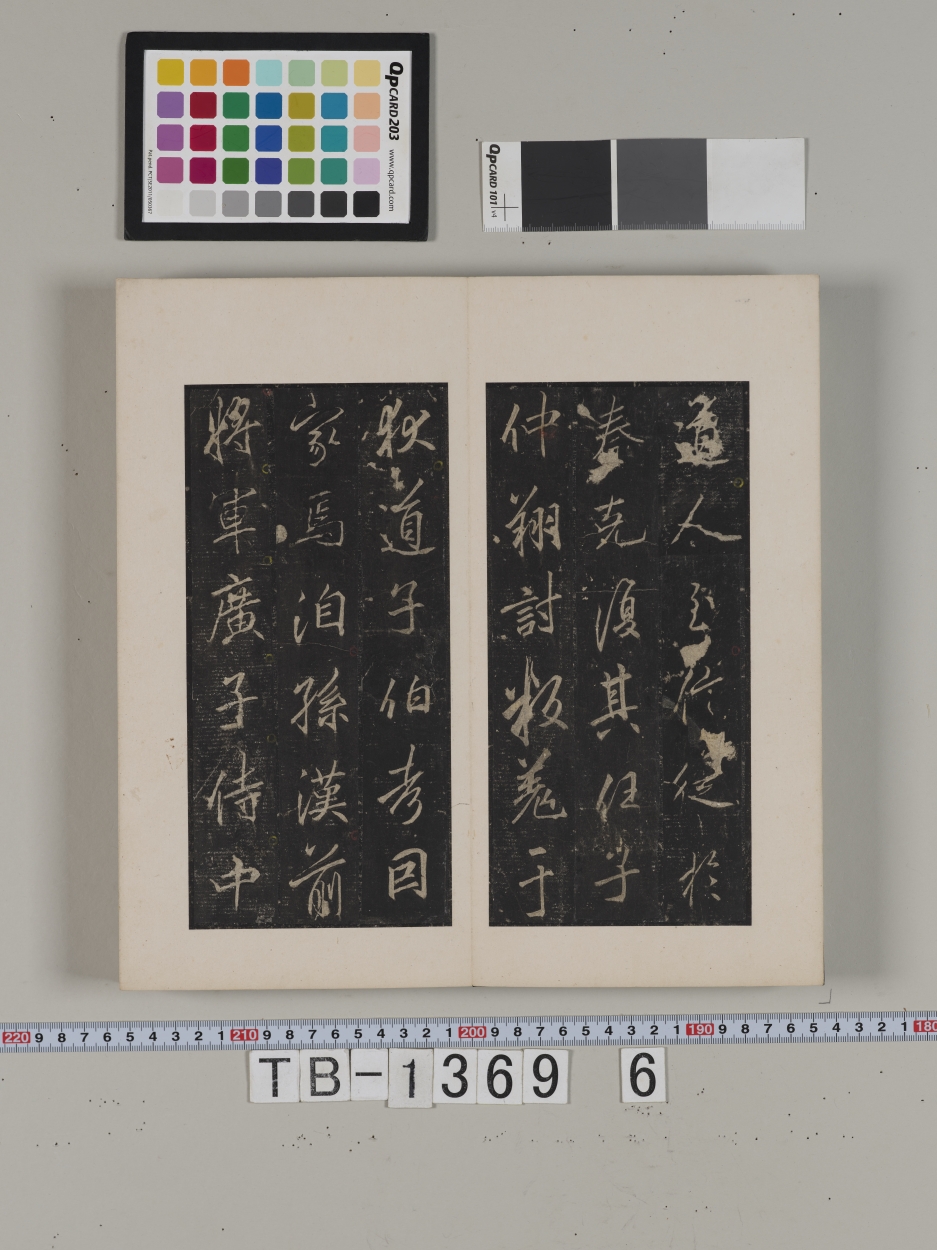 道人至信徙於
秦克復其任子
仲翔討叛羌于
狄道子伯考因
家焉洎孫漢前
將軍廣子侍中
QPCARD 203 www.qpcard.com
QPCARD 101 v4
220 9 8 7 6 5 4 3 2 1 210 9 8 7 6 5 4 3 2 1 200 9 8 7 6 5 4 3 2 1 190 9 8 7 6 5 4 3 2 1 180
TB-1369 6